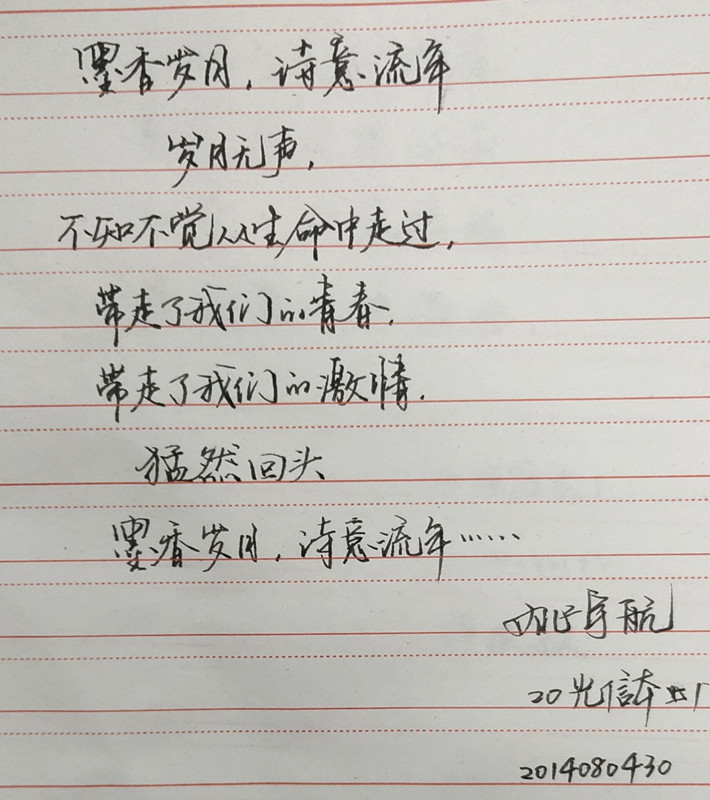 墨香岁月,诗意流年
岁月无声,
不知不觉从生命中走过,
带走了我们的青春,
带走了我们的激情,
猛然回头
墨香岁月,诗意流年……
宇航
20光信本
2014080430